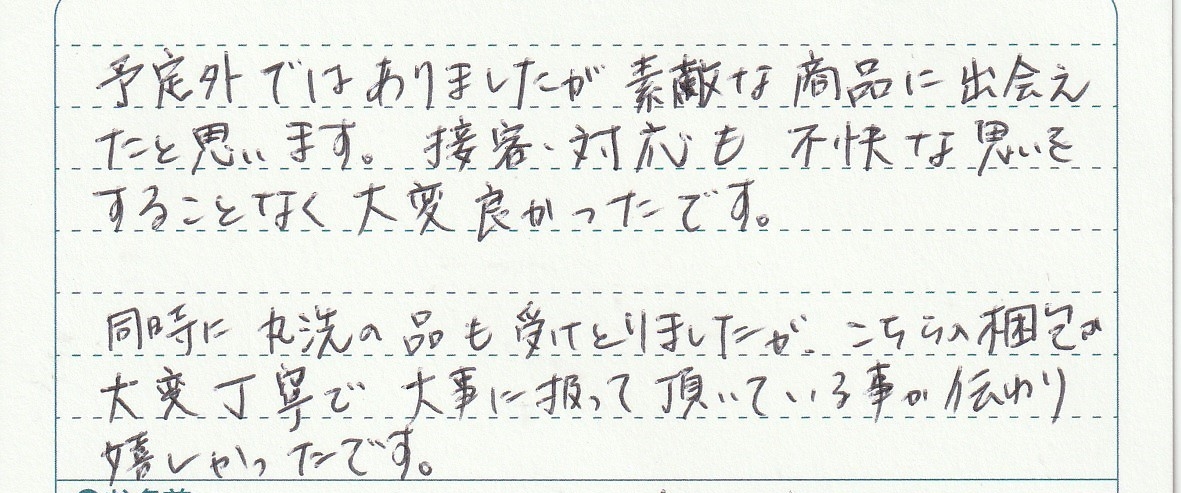 予定外ではありましたが素敵な商品に出会え
たと思います。接客、対応も不快な思いを
することなく大変良かったです。
同時に丸洗の品も受けとりましたが、こちらの梱包が
大変丁寧で大事に扱って頂いている事が伝わり
嬉しかったです。